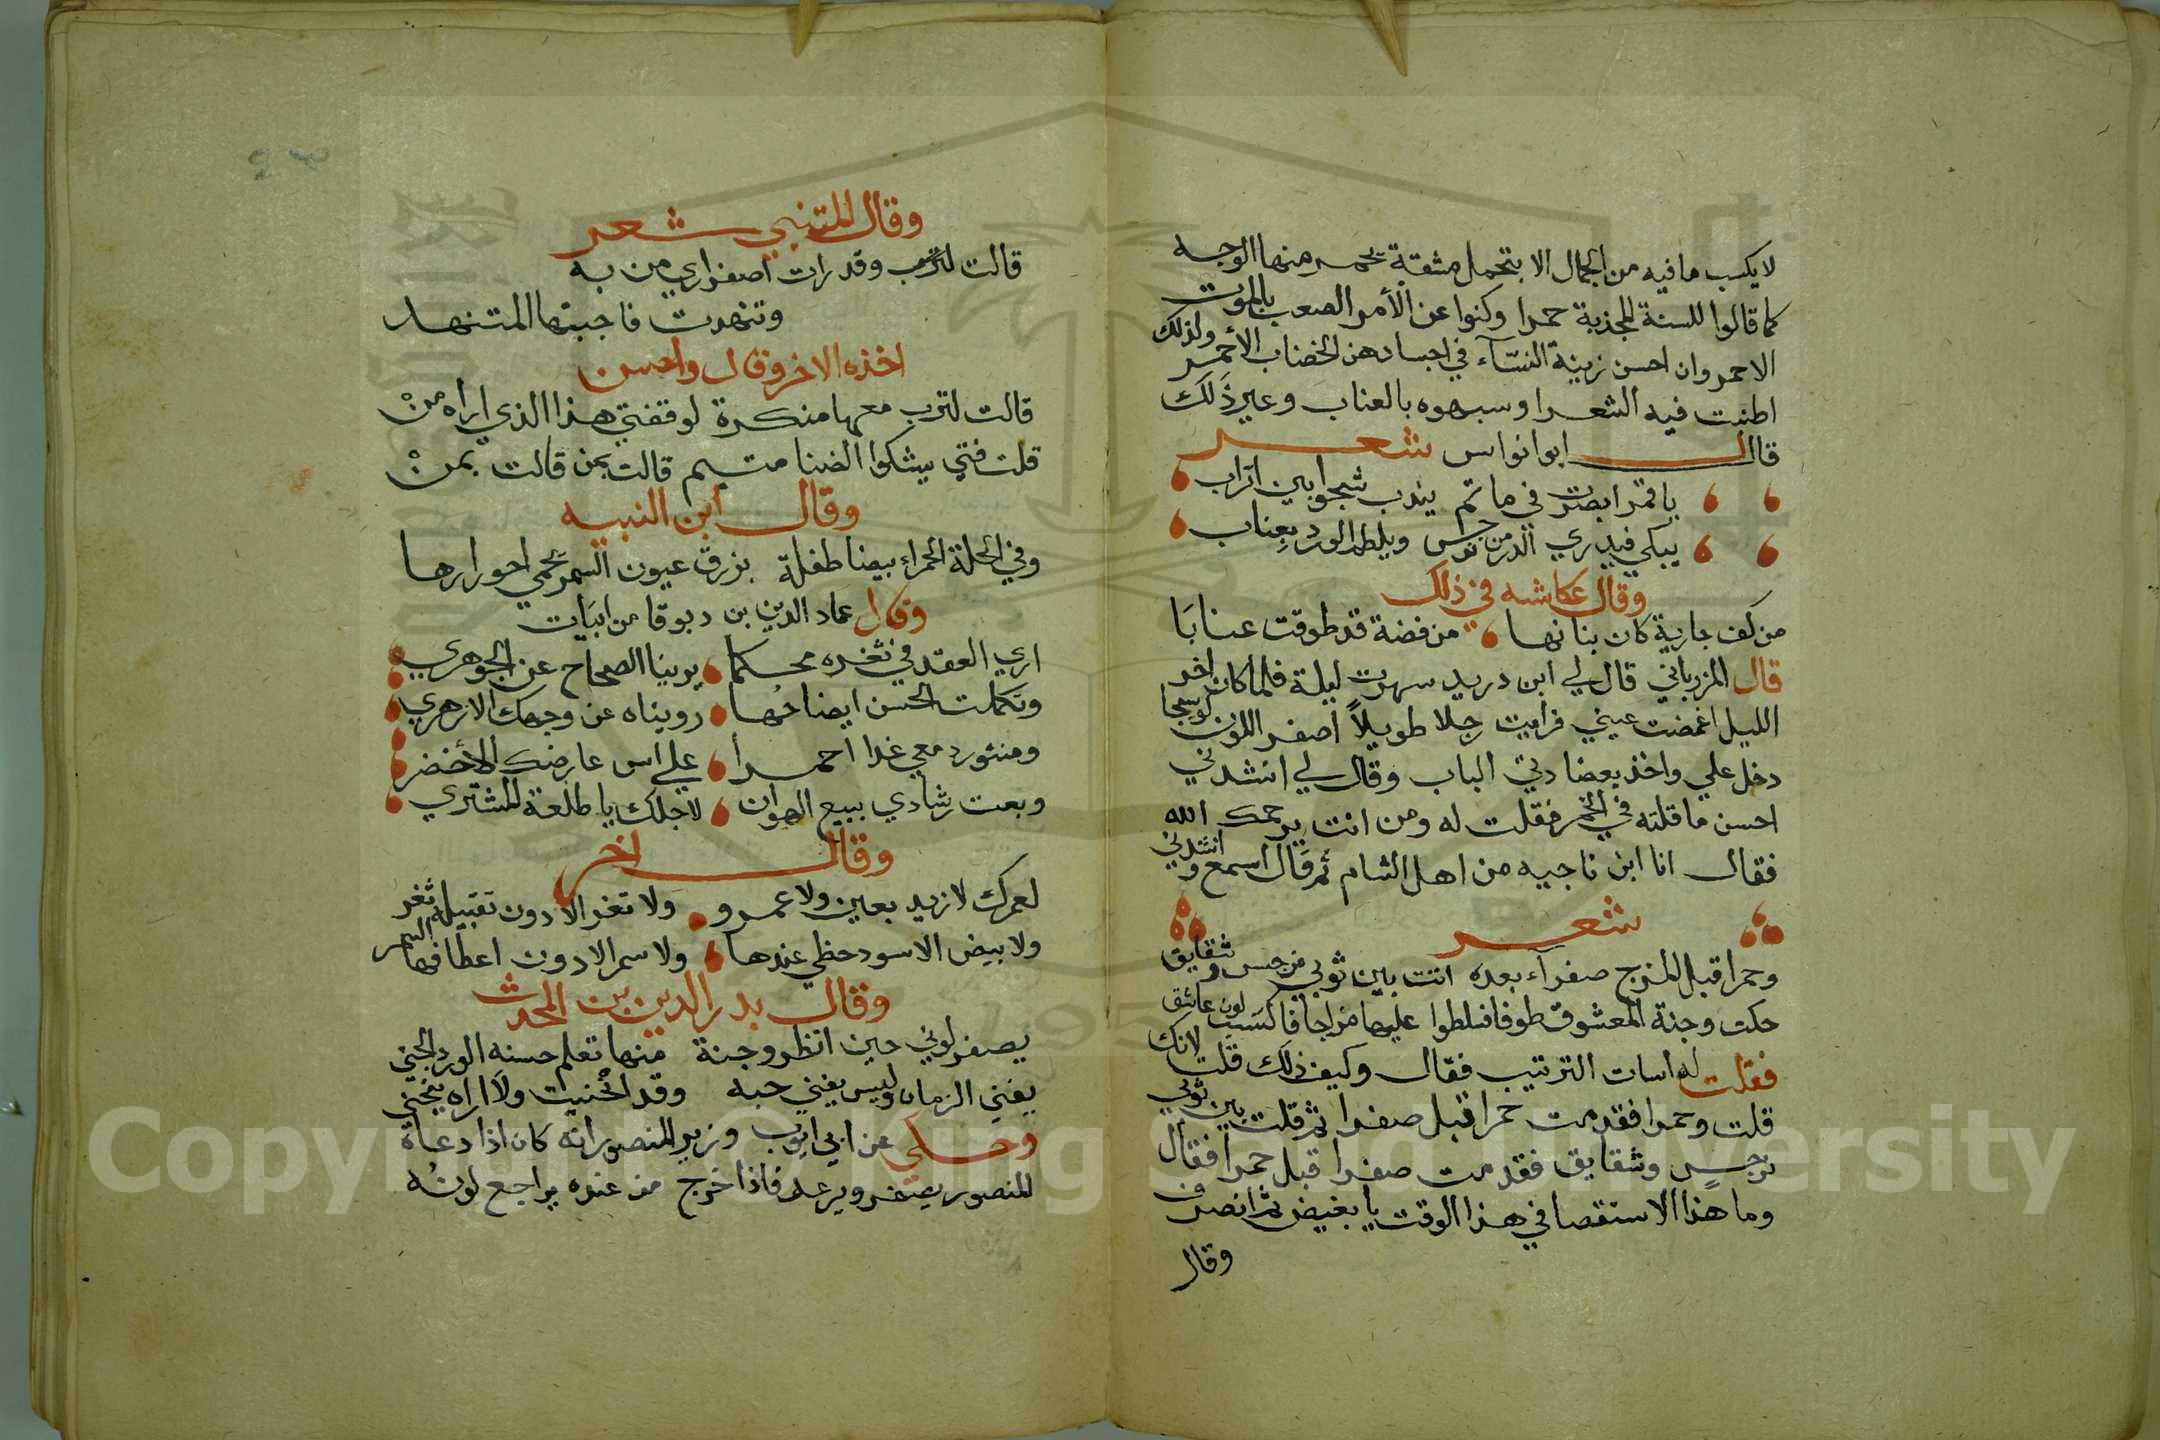 لا يكسب ما فيه من الجمال الا بتحمل مشقة يحمر منها الوجه
كما قالوا للسنة المجذبة حمرا وكنوا عن الأمر الصعب بالموت
الاحمر وان احسن زينة النسآء في اجسادهن الخضاب الأحمر ولذلك
اطنبت فيه الشعرا وسبهوه بالعناب وعير ذلك
قال ابوا نواس شعر
يا قمرا ابصرت في ماتم يندب شجوا بين اتراب
يبكي فيدري الدر من نرجس ويلطم الورد بعناب
وقال عكاشه في ذلك
من كف جارية كان بنانها من فضة قد طوقت عنابا
قال المرزباني قال لي ابن دريد سهرت ليلة فلما كان اخر
الليل اغمضت عيني فرايت رجلا طويلاً اصفر اللون كوسجا
دخل علي واخذ بعضادتي الباب وقال لي انشدني
احسن ما قلته في الخمر فقلت له ومن انت يرحمك الله
فقال انا ابن ناجيه من اهل الشام ثم قال اسمع وانشدني
شعر
وحمرا قبل المزج صفرآء بعده اتت بين ثوبي نرجس وشقايق
حكت وجنة المعشوق طوفا فسلطوا عليها مزاجا فاكتست لون عاشق
فقلت له اسات الترتيب فقال وكيف ذلك قلت لانك
قلت وحمرا فقدمت حمرا قبل صفرا ثم قلت بين ثوبي
نرجسٍ وشقايق فقدمت صفرا قبل حمرا فقال
وما هذا الاستقصا في هذا الوقت يا بغيض ثم انصرف
وقال
وقال المتنبي شعر
قالت لترب وقد رات اصفراري من به
وتنهدت فاجبتها المتنهد
اخذه الاخر وقال واحسن
قالت لترب معها منكرة لوقفتي هذا الذي اراه منْ
قلت فتي يشكوا الضنا متيم قالت بمن قالت بمنْ
وقال ابن النبيه
وفي الحلة الحمراء بيضا طفلة بزرق عيون السمر يحمي احورارها
وقال عماد الدين بن دبوقا من ابيات
اري العقد في ثغره محكما يرينا الصحاح عن الجوهري
وتكملت الحسن ايضاحها رويناه عن وجهك الازهري
ومنثور دمعي غدا احمرا علي اس عارضك الأخضر
وبعت رشادي ببيع الهوان لاجلك يا طلعة المشتري
وقال اخر
لعمرك لا زيد بعين ولا عمرو ولا تغر الا دون تقبيله ثغر
ولا بيض الا سود حظي عندها ولا سمر الا دون اعطافها السمر
وقال بدر الدين بن المحدث
يصفر لوني حين انظر وجنة منها تعلم حسنه الورد الجني
يفني الزمان وليس يفني حبه وقد انحنيت ولا اراه ينحني
وحكي عن ابي ايوب وزير المنصور انه كان اذا دعاة
المنصور يصفر ويرعد فاذا خرج من عنده يراجع لونُه
Copyright © King Saud University